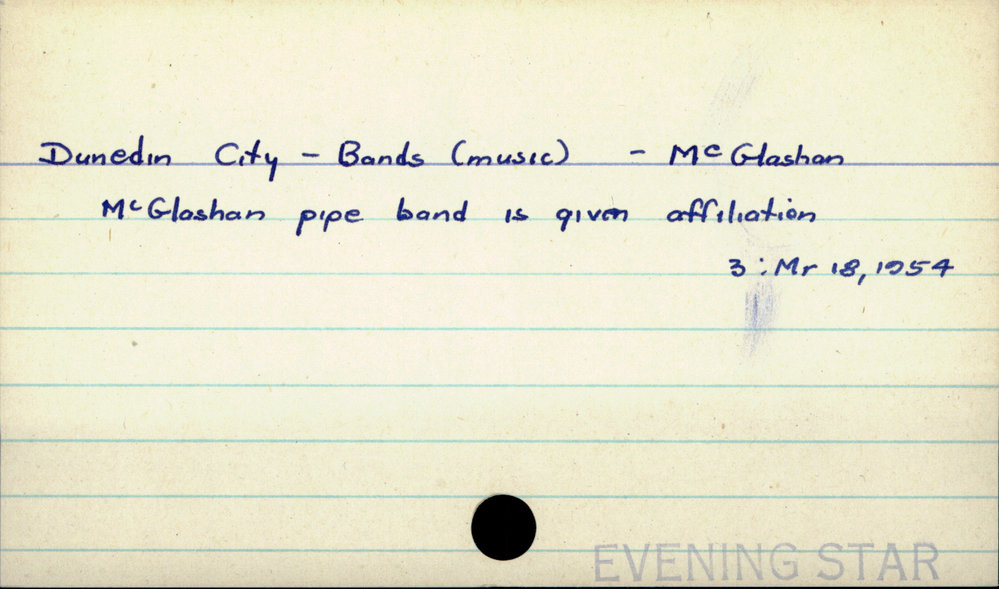 Dunedin City - Bands (music) - McGlashan
McGlashan pipe band is given affiliation
3 : Mr 18, 1954
EVENING STAR